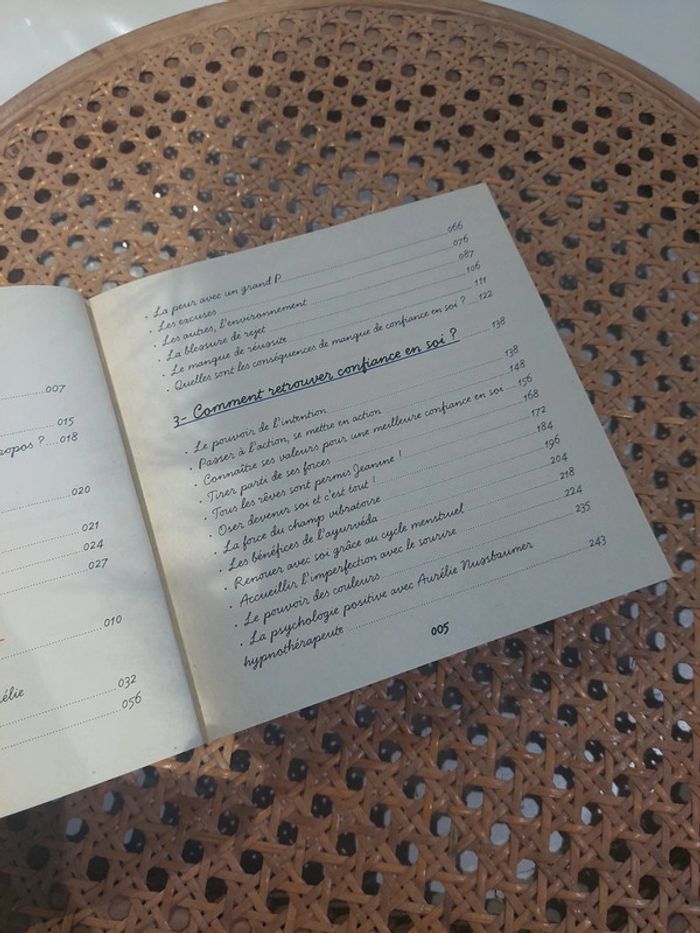 007
015
opos ?....018
020
021
024
027
010
élie
032
056
· La peur avec un grand P 066
· Les excuses 076
· Les autres, l'environnement 087
· La blessure de rejet 106
· Le manque de réussite 111
· Quelles sont les conséquences de manque de confiance en soi ? 122
3- Comment retrouver confiance en soi ? 138
· Le pouvoir de l'intention 138
· Passer à l'action, se mettre en action 148
· Connaître ses valeurs pour une meilleure confiance en soi 156
· Tirer parti de ses forces 168
· Tous les rêves sont permis Jeanine ! 172
· Oser devenir soi et c'est tout ! 184
· La force du champ vibratoire 196
· Les bénéfices de l'ayurvéda 204
· Renouer avec soi grâce au cycle menstruel 218
· Accueillir l'imperfection avec le sourire 224
· Le pouvoir des couleurs 235
· La psychologie positive avec Aurélie Nussbaumer
hypnothérapeute 243
005